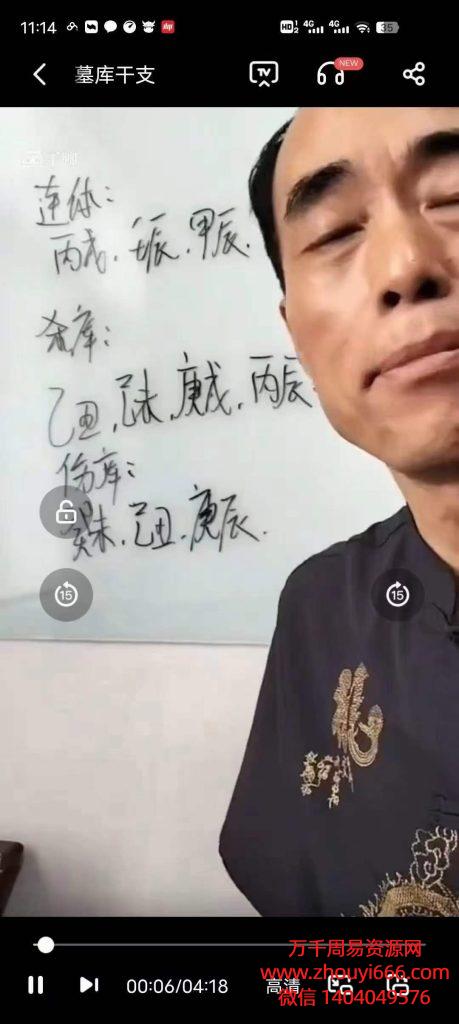 11:14
HD 1 2 4G 4G 35
墓库干支
TV
NEW
千聊
连体：
丙戌．壬辰．甲辰．
杀库：
乙丑，己未，庚戌．丙辰
伤库：
癸未．己丑．庚辰．
15
15
00:06/04:18
高清
万千周易资源网
www.zhouyi666.com
微信 1404049376